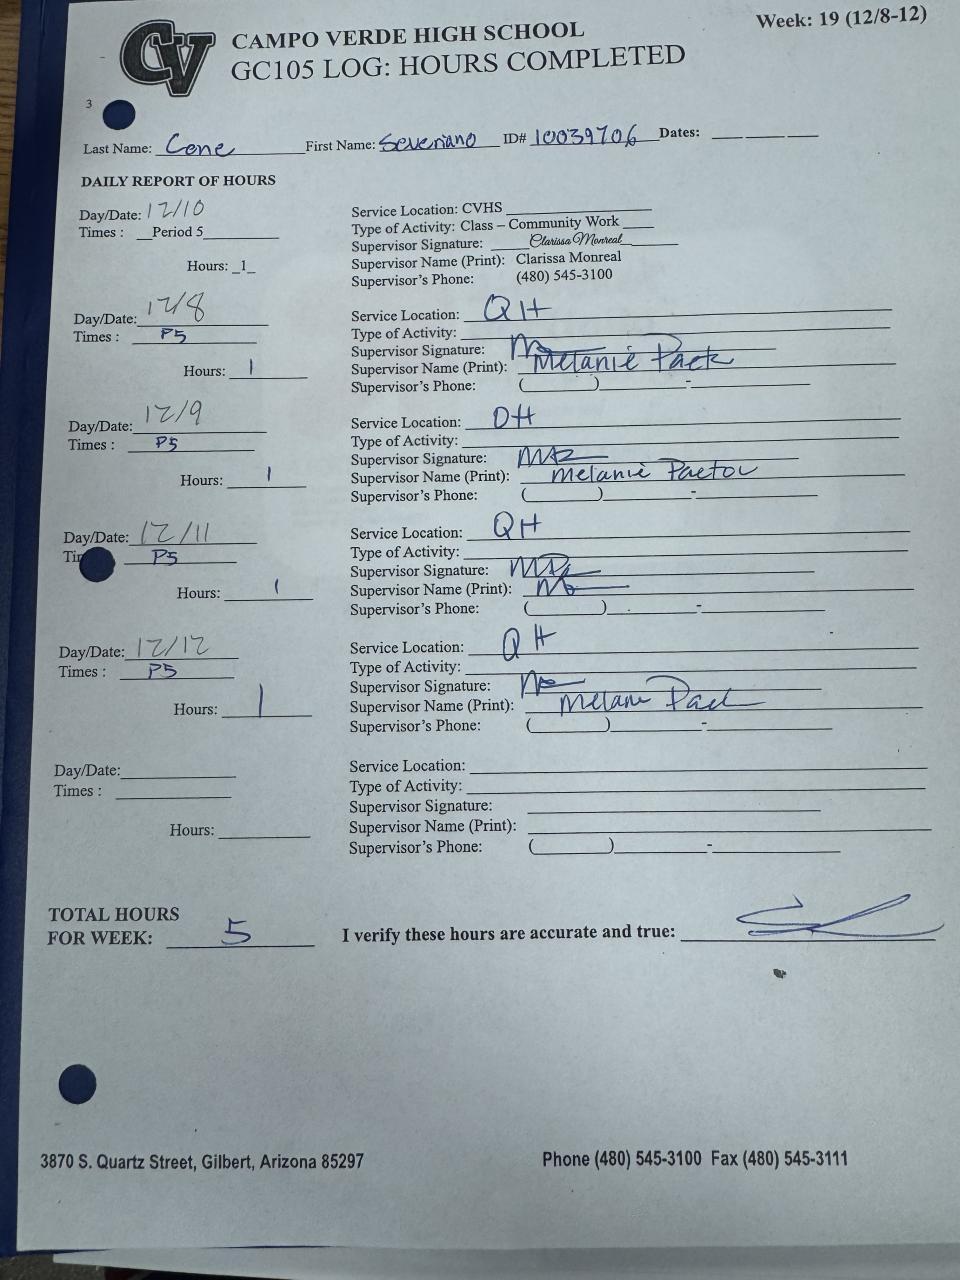 Week: 19 (12/8-12)
CV
CAMPO VERDE HIGH SCHOOL
GC105 LOG: HOURS COMPLETED
3
Last Name: Cone First Name: Severiano ID# 10039706 Dates:
DAILY REPORT OF HOURS
Day/Date: 12/10
Times : Period 5
Hours: 1
Service Location: CVHS
Type of Activity: Class – Community Work
Supervisor Signature: Clarissa Monreal
Supervisor Name (Print): Clarissa Monreal
Supervisor's Phone: (480) 545-3100
Day/Date: 12/8
Times : P5
Hours: 1
Service Location: QH
Type of Activity:
Supervisor Signature:
Supervisor Name (Print): Melanie
Supervisor's Phone: ( ) -
Day/Date: 12/9
Times : P5
Hours: 1
Service Location: QH
Type of Activity:
Supervisor Signature:
Supervisor Name (Print): Melanie
Supervisor's Phone: ( ) -
Day/Date: 12/11
P5
Hours: 1
Service Location: QH
Type of Activity:
Supervisor Signature:
Supervisor Name (Print):
Supervisor's Phone: ( ) -
Day/Date: 12/12
Times : P5
Hours: 1
Service Location: QH
Type of Activity:
Supervisor Signature:
Supervisor Name (Print): Melani
Supervisor's Phone: ( ) -
Day/Date:
Times :
Hours:
Service Location:
Type of Activity:
Supervisor Signature:
Supervisor Name (Print):
Supervisor's Phone: ( ) -
TOTAL HOURS
FOR WEEK: 5 I verify these hours are accurate and true:
3870 S. Quartz Street, Gilbert, Arizona 85297 Phone (480) 545-3100 Fax (480) 545-3111